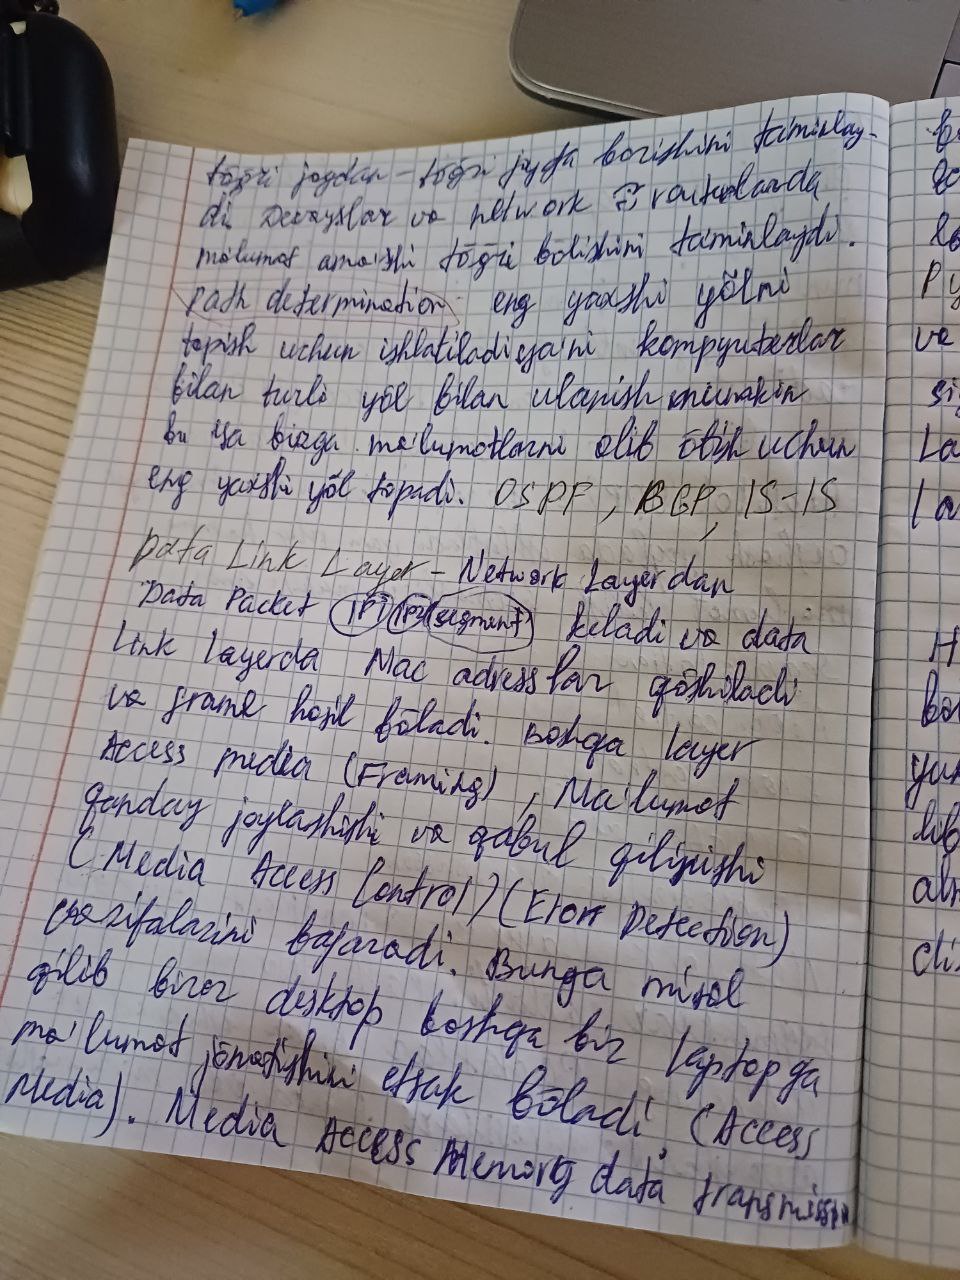 tõg̃ri joydan - tõg̃ri joyga borishini taminlay-
di Devayslar va network routelarda
ma'lumot amashi tõg̃ri bõlishini taminlaydi.
Path determination eng yaxshi yõlni
topish uchun ishlatiladi ya'ni kompyuterlar
bilan turli yõl bilan ulanish mumkin
bu sa bizga ma'lumotlarni olib õtish uchun
eng yaxshi yõl topadi. OSPF, BGP, IS-IS
Data Link Layer - Network Layerdan
Data Packet IP1 IP2 segment keladi va data
Link layerda Mac adresslar qõshiladi
va frame hosil bõladi. Boshqa layer
Access media (Framing), Ma'lumot
qanday joylashishi va qabul qilinishi
(Media Access Control) (Erorr Detection)
vazifalarini bajaradi. Bunga misol
qilib biror desktop boshqa bir laptopga
ma'lumot jõnatishini etsak bõladi. (Access
Media). Media Access Memory data transmission